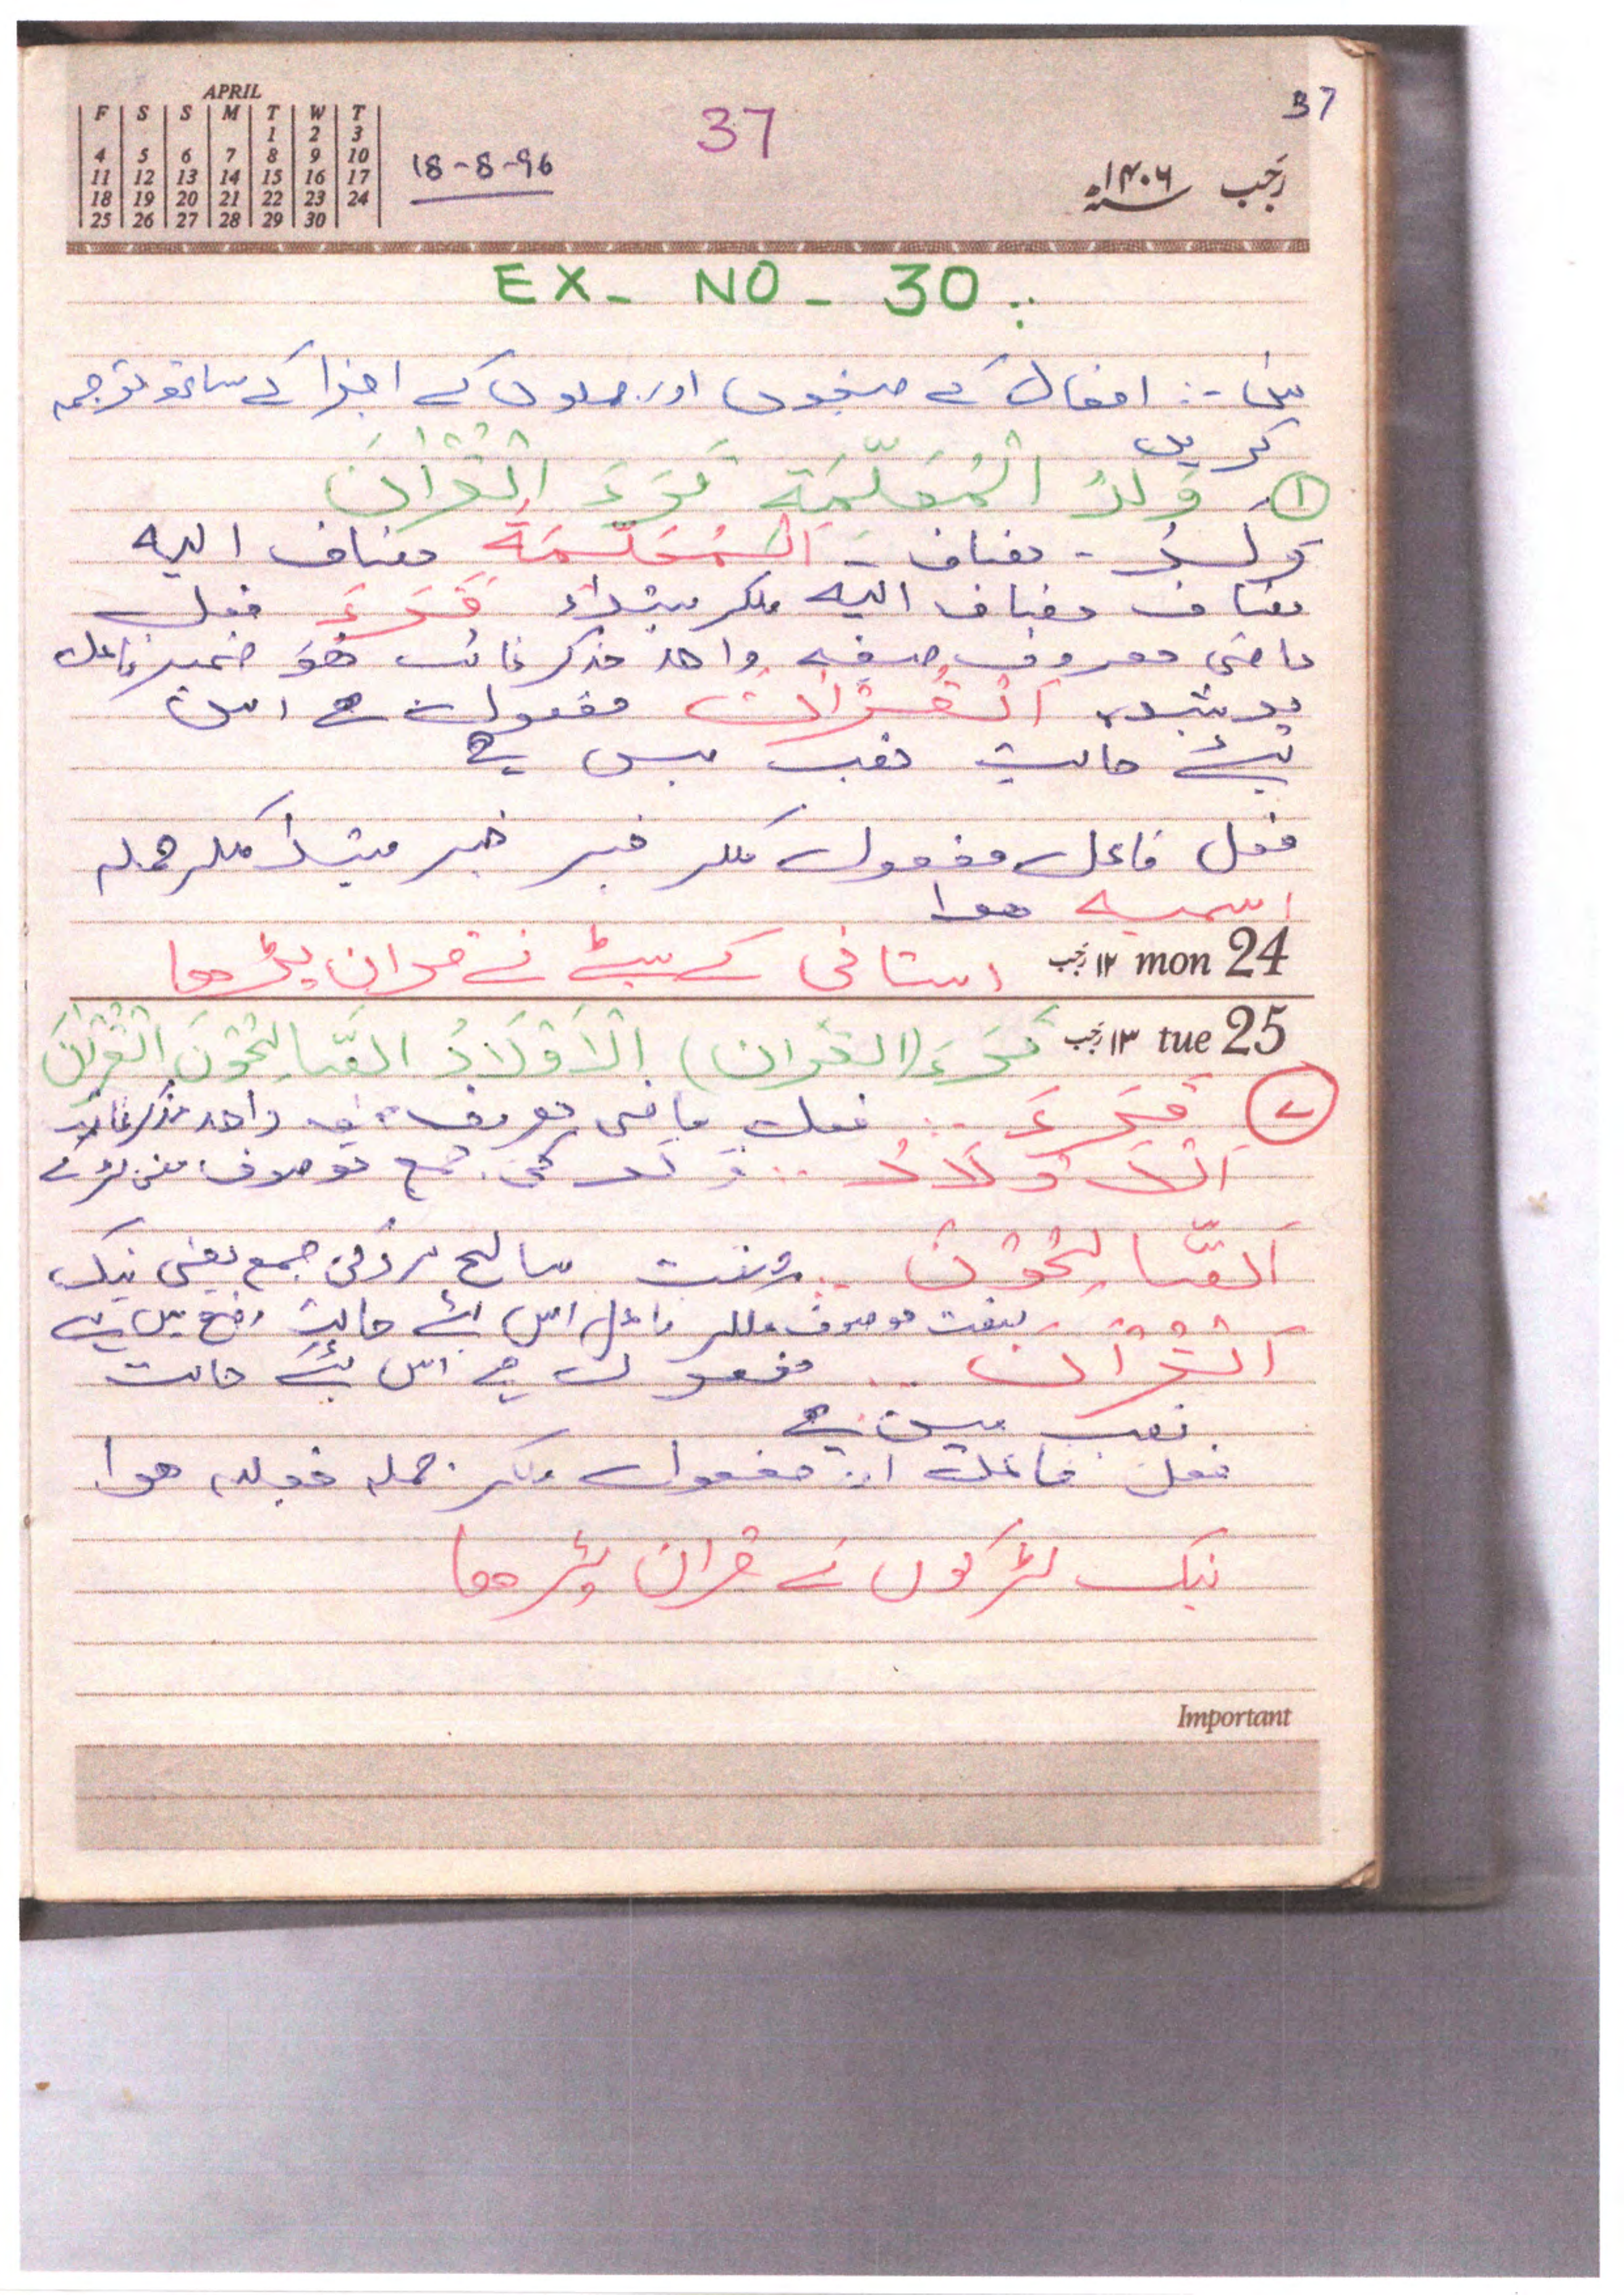 APRIL
F S S M T W T
1 2 3
4 5 6 7 8 9 10
11 12 13 14 15 16 17
18 19 20 21 22 23 24
25 26 27 28 29 30
18-8-96
37
37
رَجَب ۱۴۰۶
EX- NO- 30
افعال کے صیغوں اور جملوں کے اجزا کے ساتھ ترجمہ
کریں
① وَلَدُ الْمُعَلِّمَةِ قَرَءَ الْقُرْاٰنَ
وَلَدُ - مضاف - الْمُعَلِّمَةِ مضاف الیہ
مضاف مضاف الیہ ملکر مبتداء قَرَءَ فعل
ماضی معروف صیغہ واحد مذکر غائب ھُوَ ضمیر فاعل
پوشیدہ اَلْقُرْاٰنَ مفعول ہے اس
لئے حالت نصب میں ہے
فعل فاعل مفعول ملکر خبر خبر مبتدا ملکر جملہ
اسمیہ ھوا
۱۲ رجب mon 24
استانی کے بیٹے نے قران پڑھا
۱۳ رجب tue 25
قَرَءَ (القران) اَلْاَوْلَادُ الصَّالِحُوْنَ الْقُرْاٰنَ
② قَرَءَ .. فعل ماضی معروف واحد مذکر غائب
اَلْاَوْلَادُ .. ولد کی جمع موصوف
اَلصَّالِحُوْنَ .. صفت صالح کی جمع یعنی نیک
صفت موصوف ملکر فاعل اس لئے حالت رفع میں ہے
اَلْقُرْاٰنَ .. مفعول ہے اس لئے حالت
نصب میں ہے
فعل فاعل اور مفعول ملکر جملہ فعلیہ ھوا
نیک لڑکوں نے قران پڑھا
Important